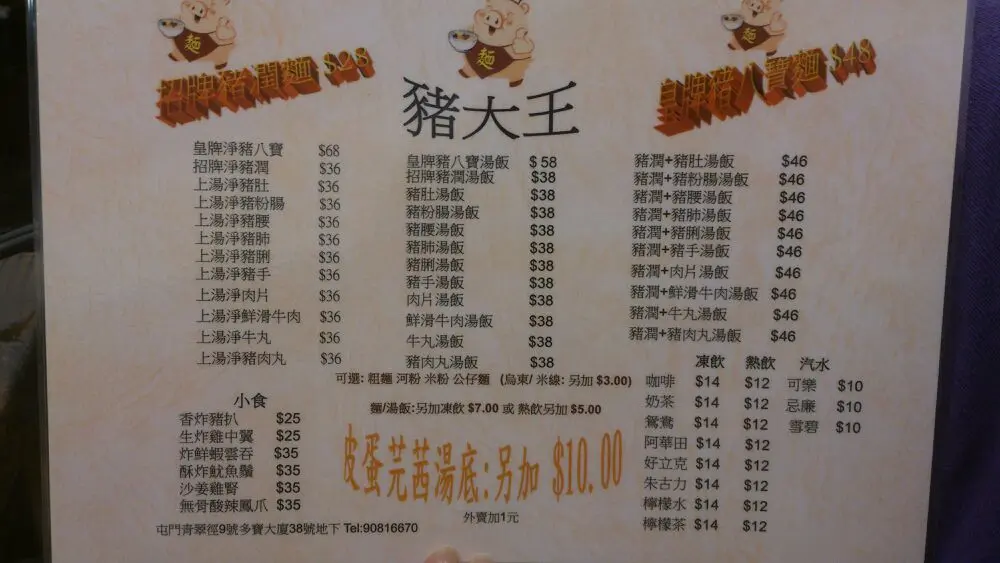 麵
麵
麵
招牌豬潤麵 $28
豬大王
皇牌豬八寶麵 $48
皇牌淨豬八寶 $68
招牌淨豬潤 $36
上湯淨豬肚 $36
上湯淨豬粉腸 $36
上湯淨豬腰 $36
上湯淨豬肺 $36
上湯淨豬脷 $36
上湯淨豬手 $36
上湯淨肉片 $36
上湯淨鮮滑牛肉 $36
上湯淨牛丸 $36
上湯淨豬肉丸 $36
皇牌豬八寶湯飯 $58
招牌豬潤湯飯 $38
豬肚湯飯 $38
豬粉腸湯飯 $38
豬腰湯飯 $38
豬肺湯飯 $38
豬脷湯飯 $38
豬手湯飯 $38
肉片湯飯 $38
鮮滑牛肉湯飯 $38
牛丸湯飯 $38
豬肉丸湯飯 $38
豬潤+豬肚湯飯 $46
豬潤+豬粉腸湯飯 $46
豬潤+豬腰湯飯 $46
豬潤+豬肺湯飯 $46
豬潤+豬脷湯飯 $46
豬潤+豬手湯飯 $46
豬潤+肉片湯飯 $46
豬潤+鮮滑牛肉湯飯 $46
豬潤+牛丸湯飯 $46
豬潤+豬肉丸湯飯 $46
可選: 粗麵 河粉 米粉 公仔麵 (烏東/ 米線: 另加 $3.00)
麵/湯飯:另加凍飲 $7.00 或 熱飲另加 $5.00
小食
香炸豬扒 $25
生炸雞中翼 $25
炸鮮蝦雲吞 $35
酥炸魷魚鬚 $35
沙姜雞腎 $35
無骨酸辣鳳爪 $35
皮蛋芫茜湯底:另加 $10.00
外賣加1元
凍飲 熱飲 汽水
咖啡 $14 $12 可樂 $10
奶茶 $14 $12 忌廉 $10
鴛鴦 $14 $12 雪碧 $10
阿華田 $14 $12
好立克 $14 $12
朱古力 $14 $12
檸檬水 $14 $12
檸檬茶 $14 $12
屯門青翠徑9號多寶大廈38號地下 Tel:90816670